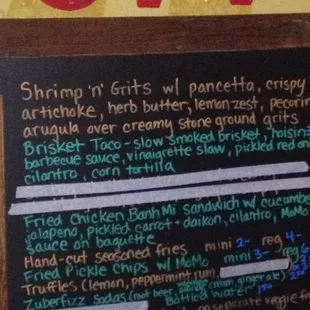 Shrimp 'n' Grits w/ pancetta, crispy
artichoke, herb butter, lemon zest, pecorin
arugula over creamy stone ground grits
Brisket Taco - slow smoked brisket, hoisin
barbecue sauce, vinaigrette slaw, pickled red oni
cilantro, corn tortilla
Fried Chicken Banh Mi Sandwich w/ cucumbe
jalapeno, pickled carrot + daikon, cilantro, MoMo
sauce on baguette
Hand-cut seasoned fries mini 2- reg 4-
Fried Pickle Chips w/ MoMo mini 3- reg 6
Truffles (lemon, peppermint rum)
Zuberfizz Sodas (root beer, cream, ginger ale)
Bottled water
separate veggie fr